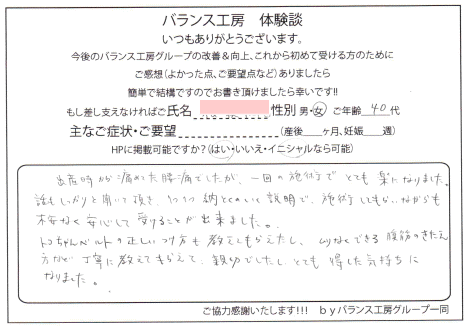 バランス工房　体験談
いつもありがとうございます。
今後のバランス工房グループの改善＆向上、これから初めて受ける方のために
ご感想（よかった点、ご要望点など）ありましたら
簡単で結構ですのでお書き頂けましたら幸いです!!
もし差し支えなければご氏名 性別 男・女 ご年齢 40 代
主なご症状・ご要望 （産後 ヶ月、妊娠 週）
HPに掲載可能ですか？（はい・いいえ・イニシャルなら可能）
出産時から痛めた腰痛でしたが、一回の施術でとても楽になりました。
話もしっかりと聞いて頂き、1つ1つ納とくのいく説明で、施術しもらいながらも
不安なく安心して受けることが出来ました。
トコちゃんベルトの正しいつけ方も教えてもらえたし、ムリなくできる腹筋のきたえ
方など丁寧に教えてもらえて、親切でしたし、とても得した気持ちに
なりました。
ご協力感謝いたします!!! byバランス工房グループ一同